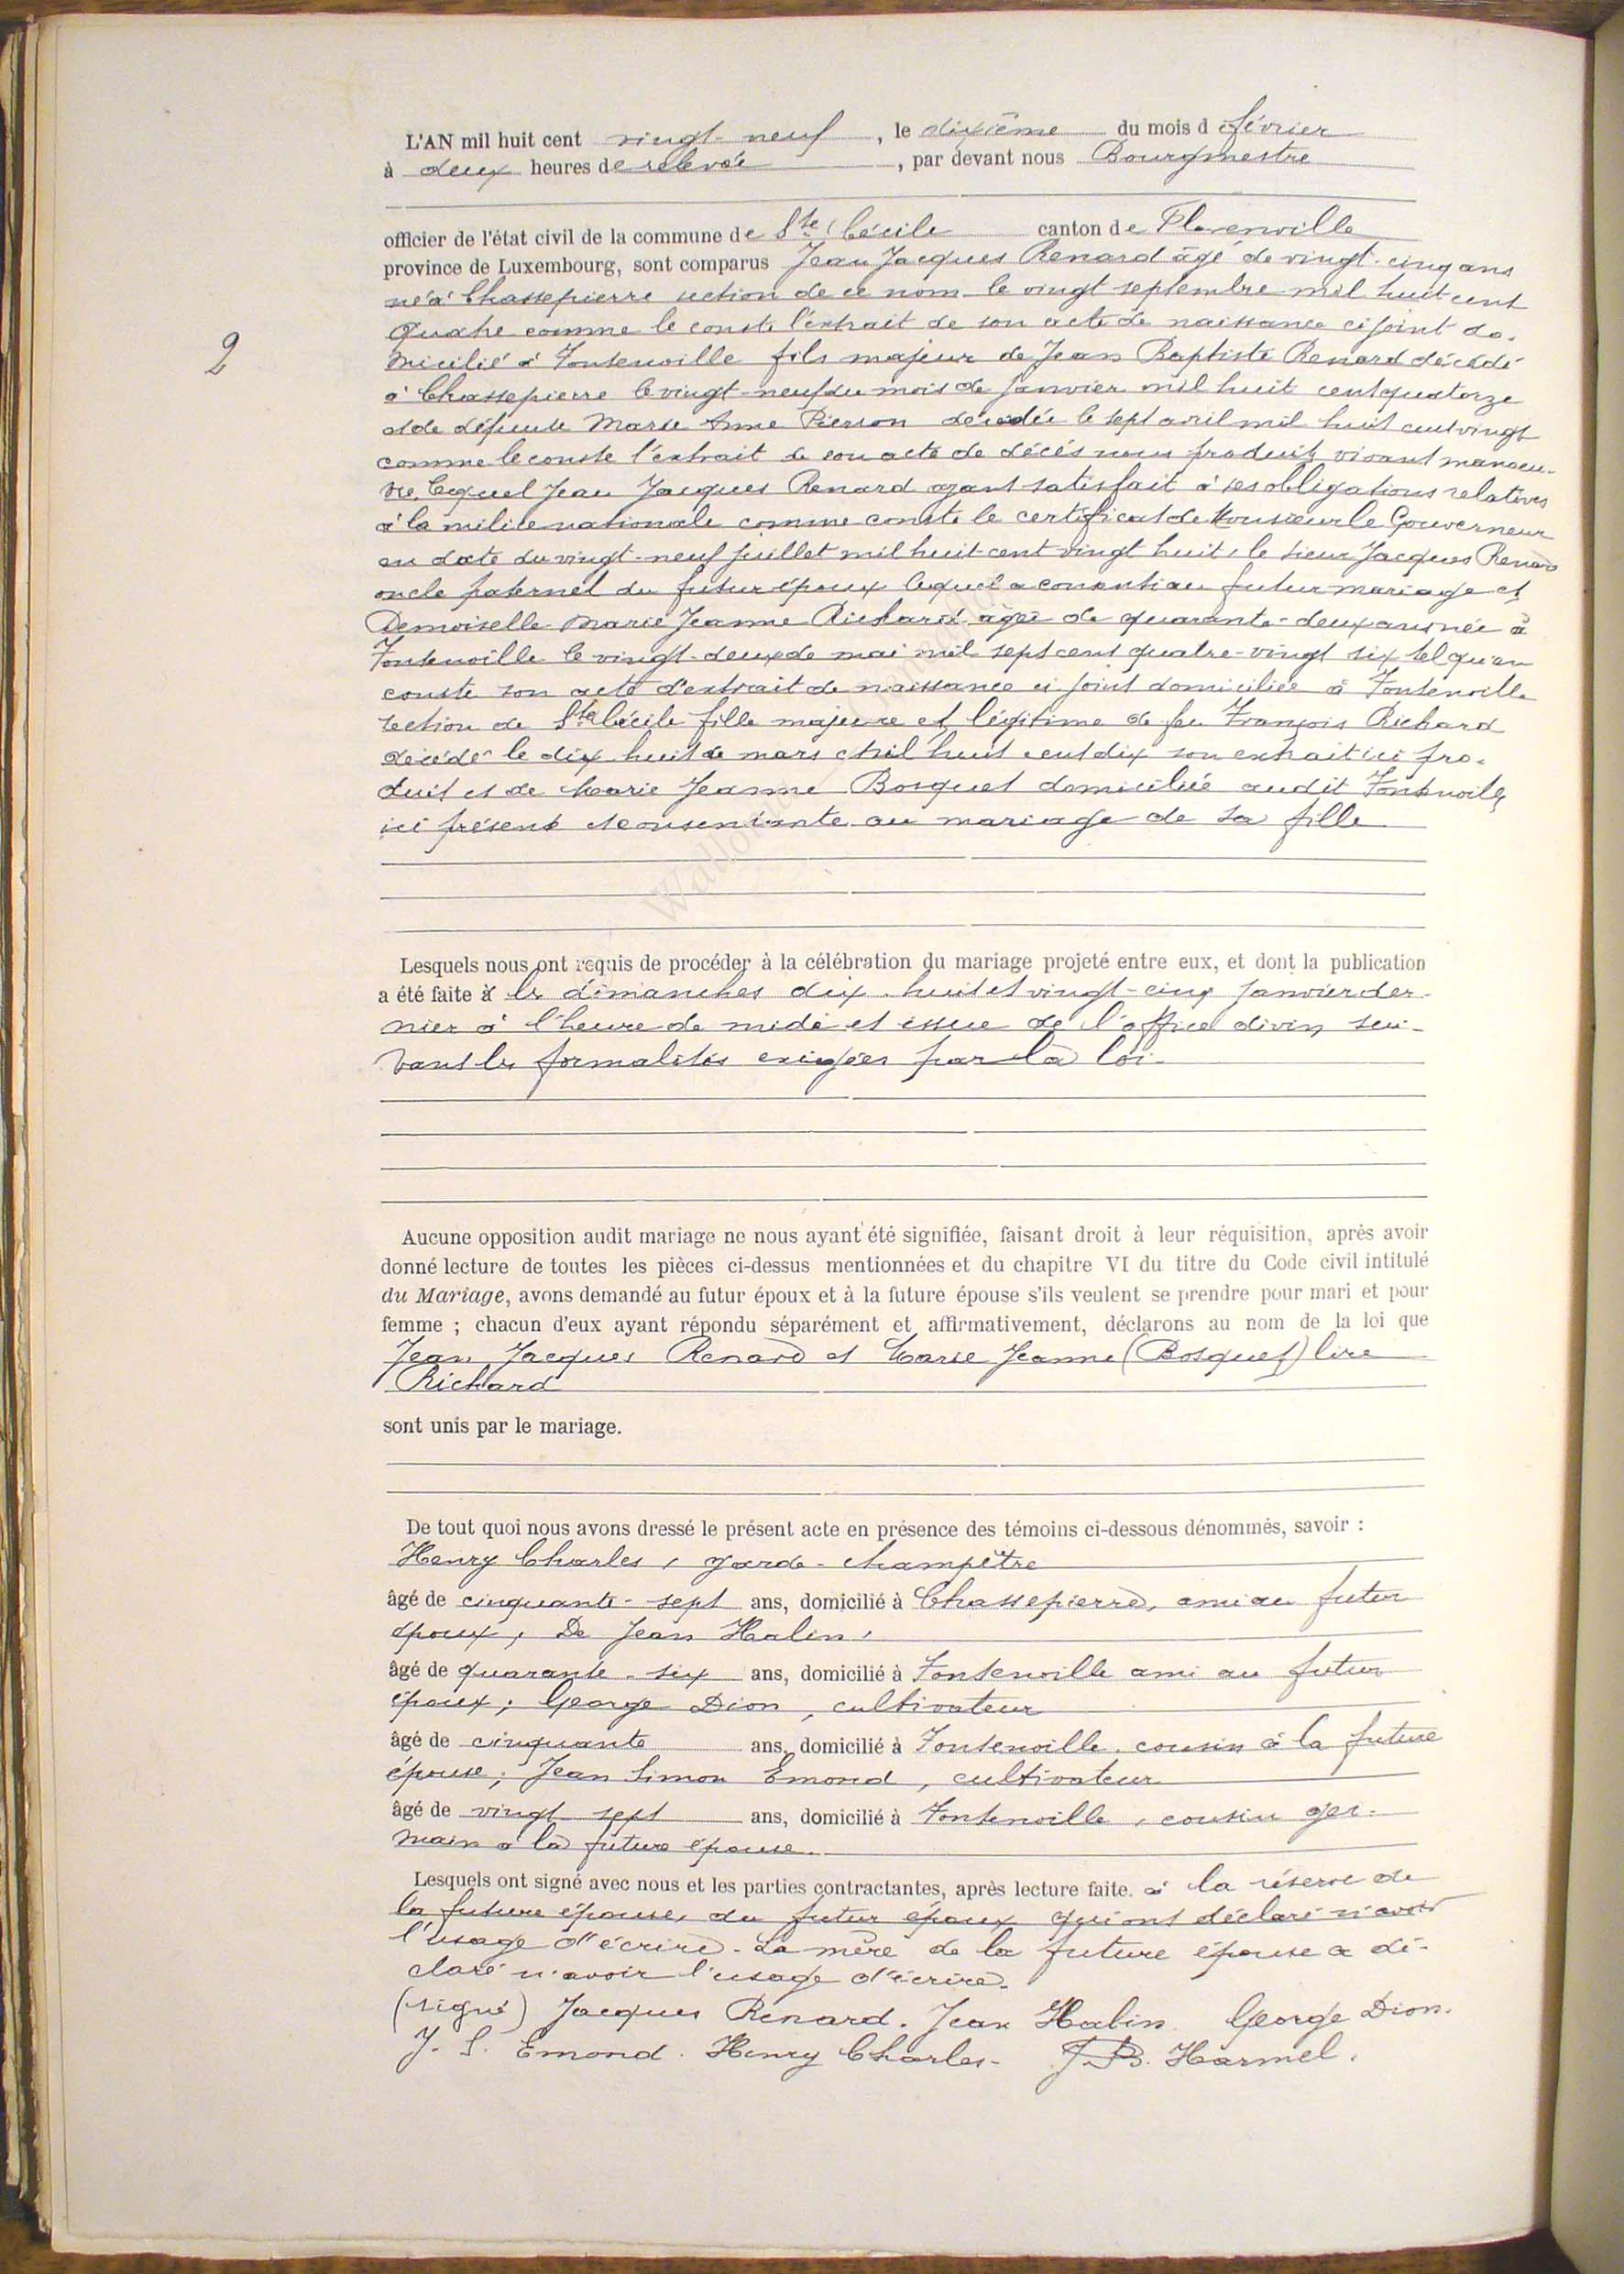 L'AN mil huit cent vingt-neuf, le dixième du mois de février
à deux heures de relevée, par devant nous Bourgmestre
officier de l'état civil de la commune de Ste Cécile canton de Florenville
province de Luxembourg, sont comparus Jean Jacques Renard âgé de vingt-cinq ans
2
né à Chassepierre section de ce nom le vingt septembre mil huit cent
quatre comme le conste l'extrait de son acte de naissance ci joint do-
micilié à Fontenoille fils majeur de Jean Baptiste Renard décédé
à Chassepierre le vingt-neuf du mois de janvier mil huit cent quatorze
et de défunte Marie Anne Pierson décédée le sept avril mil huit cent vingt
comme le conste l'extrait de son acte de décès nous produit, vivant manoeu-
vre, lequel Jean Jacques Renard ayant satisfait à ses obligations relatives
à la milice nationale comme conste le certificat de Monsieur le Gouverneur
en date du vingt-neuf juillet mil huit-cent vingt huit, le sieur Jacques Renard
oncle paternel du futur époux lequel a consenti au futur mariage et
Demoiselle Marie Jeanne Richard âgée de quarante-deux ans née à
Fontenoille le vingt-deux de mai mil sept cent quatre-vingt six tel qu'en
conste son acte d'extrait de naissance ci joint domiciliée à Fontenoille
section de Ste Cécile fille majeure et légitime de feu François Richard
décédé le dix huit de mars mil huit cent dix son extrait ici pro-
duit et de Marie Jeanne Bosquet domiciliée audit Fontenoille
ici présent et consentante au mariage de sa fille
Lesquels nous ont requis de procéder à la célébration du mariage projeté entre eux, et dont la publication
a été faite à les dimanches dix-huit et vingt-cinq janvier der-
nier à l'heure de midi et issue de l'office divin sui-
vant les formalités exigées par la loi.
Aucune opposition audit mariage ne nous ayant été signifiée, faisant droit à leur réquisition, après avoir
donné lecture de toutes les pièces ci-dessus mentionnées et du chapitre VI du titre du Code civil intitulé
du Mariage, avons demandé au futur époux et à la future épouse s'ils veulent se prendre pour mari et pour
femme ; chacun d'eux ayant répondu séparément et affirmativement, déclarons au nom de la loi que
Jean Jacques Renard et Marie Jeanne (Bosquet) lire
Richard
sont unis par le mariage.
De tout quoi nous avons dressé le présent acte en présence des témoins ci-dessous dénommés, savoir :
Henry Charles, garde-champêtre
âgé de cinquante-sept ans, domicilié à Chassepierre, ami au futur
époux, De Jean Halin,
âgé de quarante-six ans, domicilié à Fontenoille ami au futur
époux; George Dion, cultivateur
âgé de cinquante ans, domicilié à Fontenoille, cousin à la future
épouse; Jean Simon Emond, cultivateur
âgé de vingt sept ans, domicilié à Fontenoille, cousin ger-
main à la future épouse.
Lesquels ont signé avec nous et les parties contractantes, après lecture faite. à la réserve de
la future épouse, du futur époux qui ont déclaré n'avoir
l'usage d'écrire. La mère de la future épouse a dé-
claré n'avoir l'usage d'écrire.
(signé) Jacques Renard. Jean Halin. George Dion.
J. S. Emond. Henry Charles. J.B. Harmel.